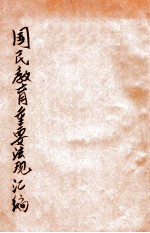 国民教育重要法规汇编